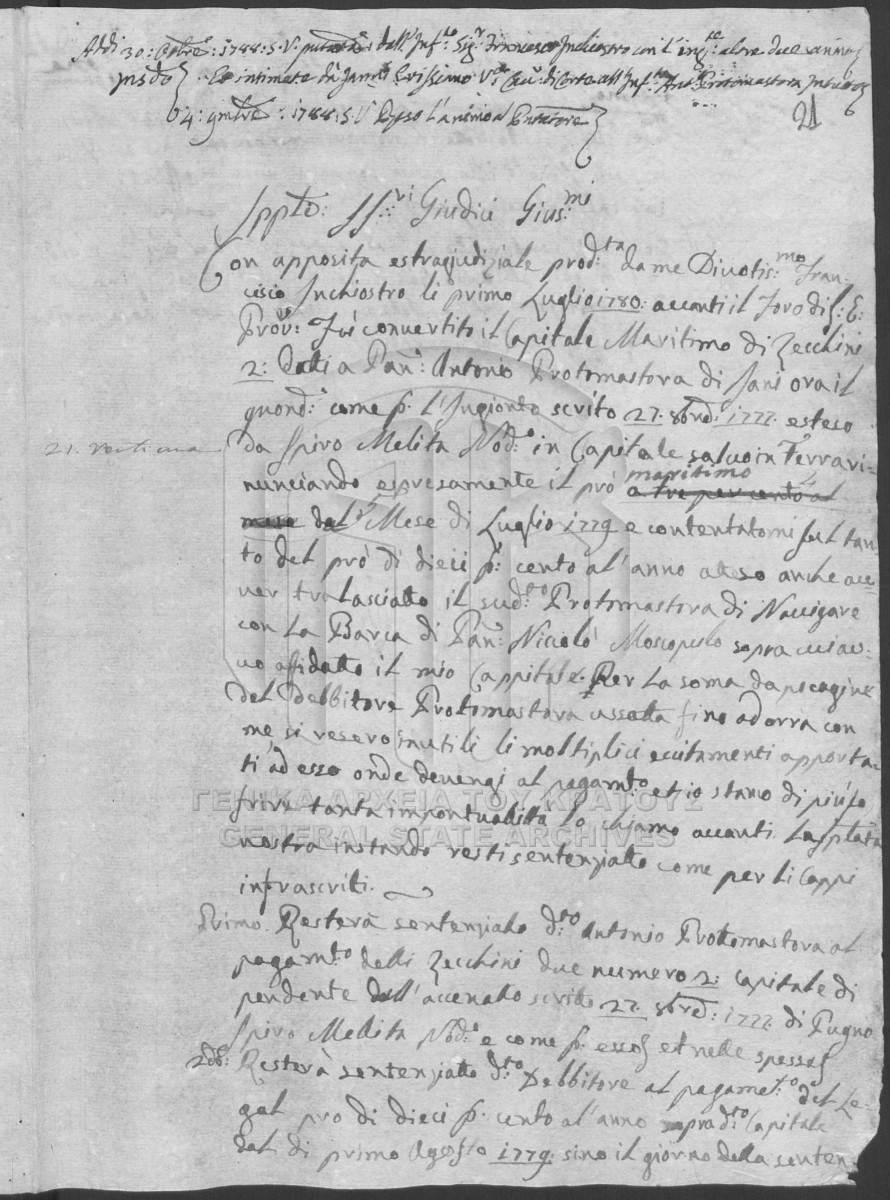 Addi 30: Ottbre: 1788: S. V. dall' Inf.to Sig.r Francesco Inchiostro con l'ing.te alore due anno
Ex intimata da Janni Crissino V.e di Corte all' Inf.to Ant.o Protomastora
4: 9mbre: 1788: S. V. Esteso l'animo al
21
Spp.to: SS:ri Giudici Gius:mi
Con apposita estragiudiziale prod:ta da me Divotis:mo Fran-
cesco Inchiostro li primo Luglio 1780: avanti il Foro di S: E:
Prov:r Fu convertito il Capitale Maritimo di Zecchini
2: Dalli a Pan: Antonio Protomastora di Jani ora il
quond:m come p: l'Ingionto scrito 27. 8bre: 1777. esteso
21. Ventiuno
da Spiro Melita Nod:o in Capitale salvo in Terra ri-
nunciando espresamente il prò maritimo a tre per cento al
mese dal Mese di Luglio 1779 e contentatomi sol tan-
to del prò di dieci p: cento al' anno atteso anche av-
ver tralasciatto il sud:to Protomastora di Navigare
con La Barca di Pan: Niccolò Moscopulo sopra cui av-
vo afidatto il mio Cappitale. Per La soma dapocagine
del Debbitore Protomastora ussatta fino ad orra con
me, si resero inutili li moltiplici eccitamenti apporta-
ti ad esso onde devengi al pagam:to et io stano di più so-
frire tanta impontualitta Lo chiamo avanti La Sp:tta
ΓΕΝΙΚΑ ΑΡΧΕΙΑ ΤΟΥ ΚΡΑΤΟΥΣ
GENERAL STATE ARCHIVES
nostra instando resti sentenziatto come per li Cappi
infrascriti.
Primo. Resterà sentenziato d:to Antonio Protomastora al
pagam:to delli Zecchini due numero 2: Capitale di
pendente dall' accenatto scrito 27. 8bre: 1777. di Pugno
Spiro Mellita Nod:o e come p: esso et nelle spesse
2do: Resterà sentenziatto d:to Debbitore al pagame:to del Le-
gal pro di dieci p: cento al' anno soprad:to Capitale
dal di primo Agosto 1779. sino il giorno della senten-